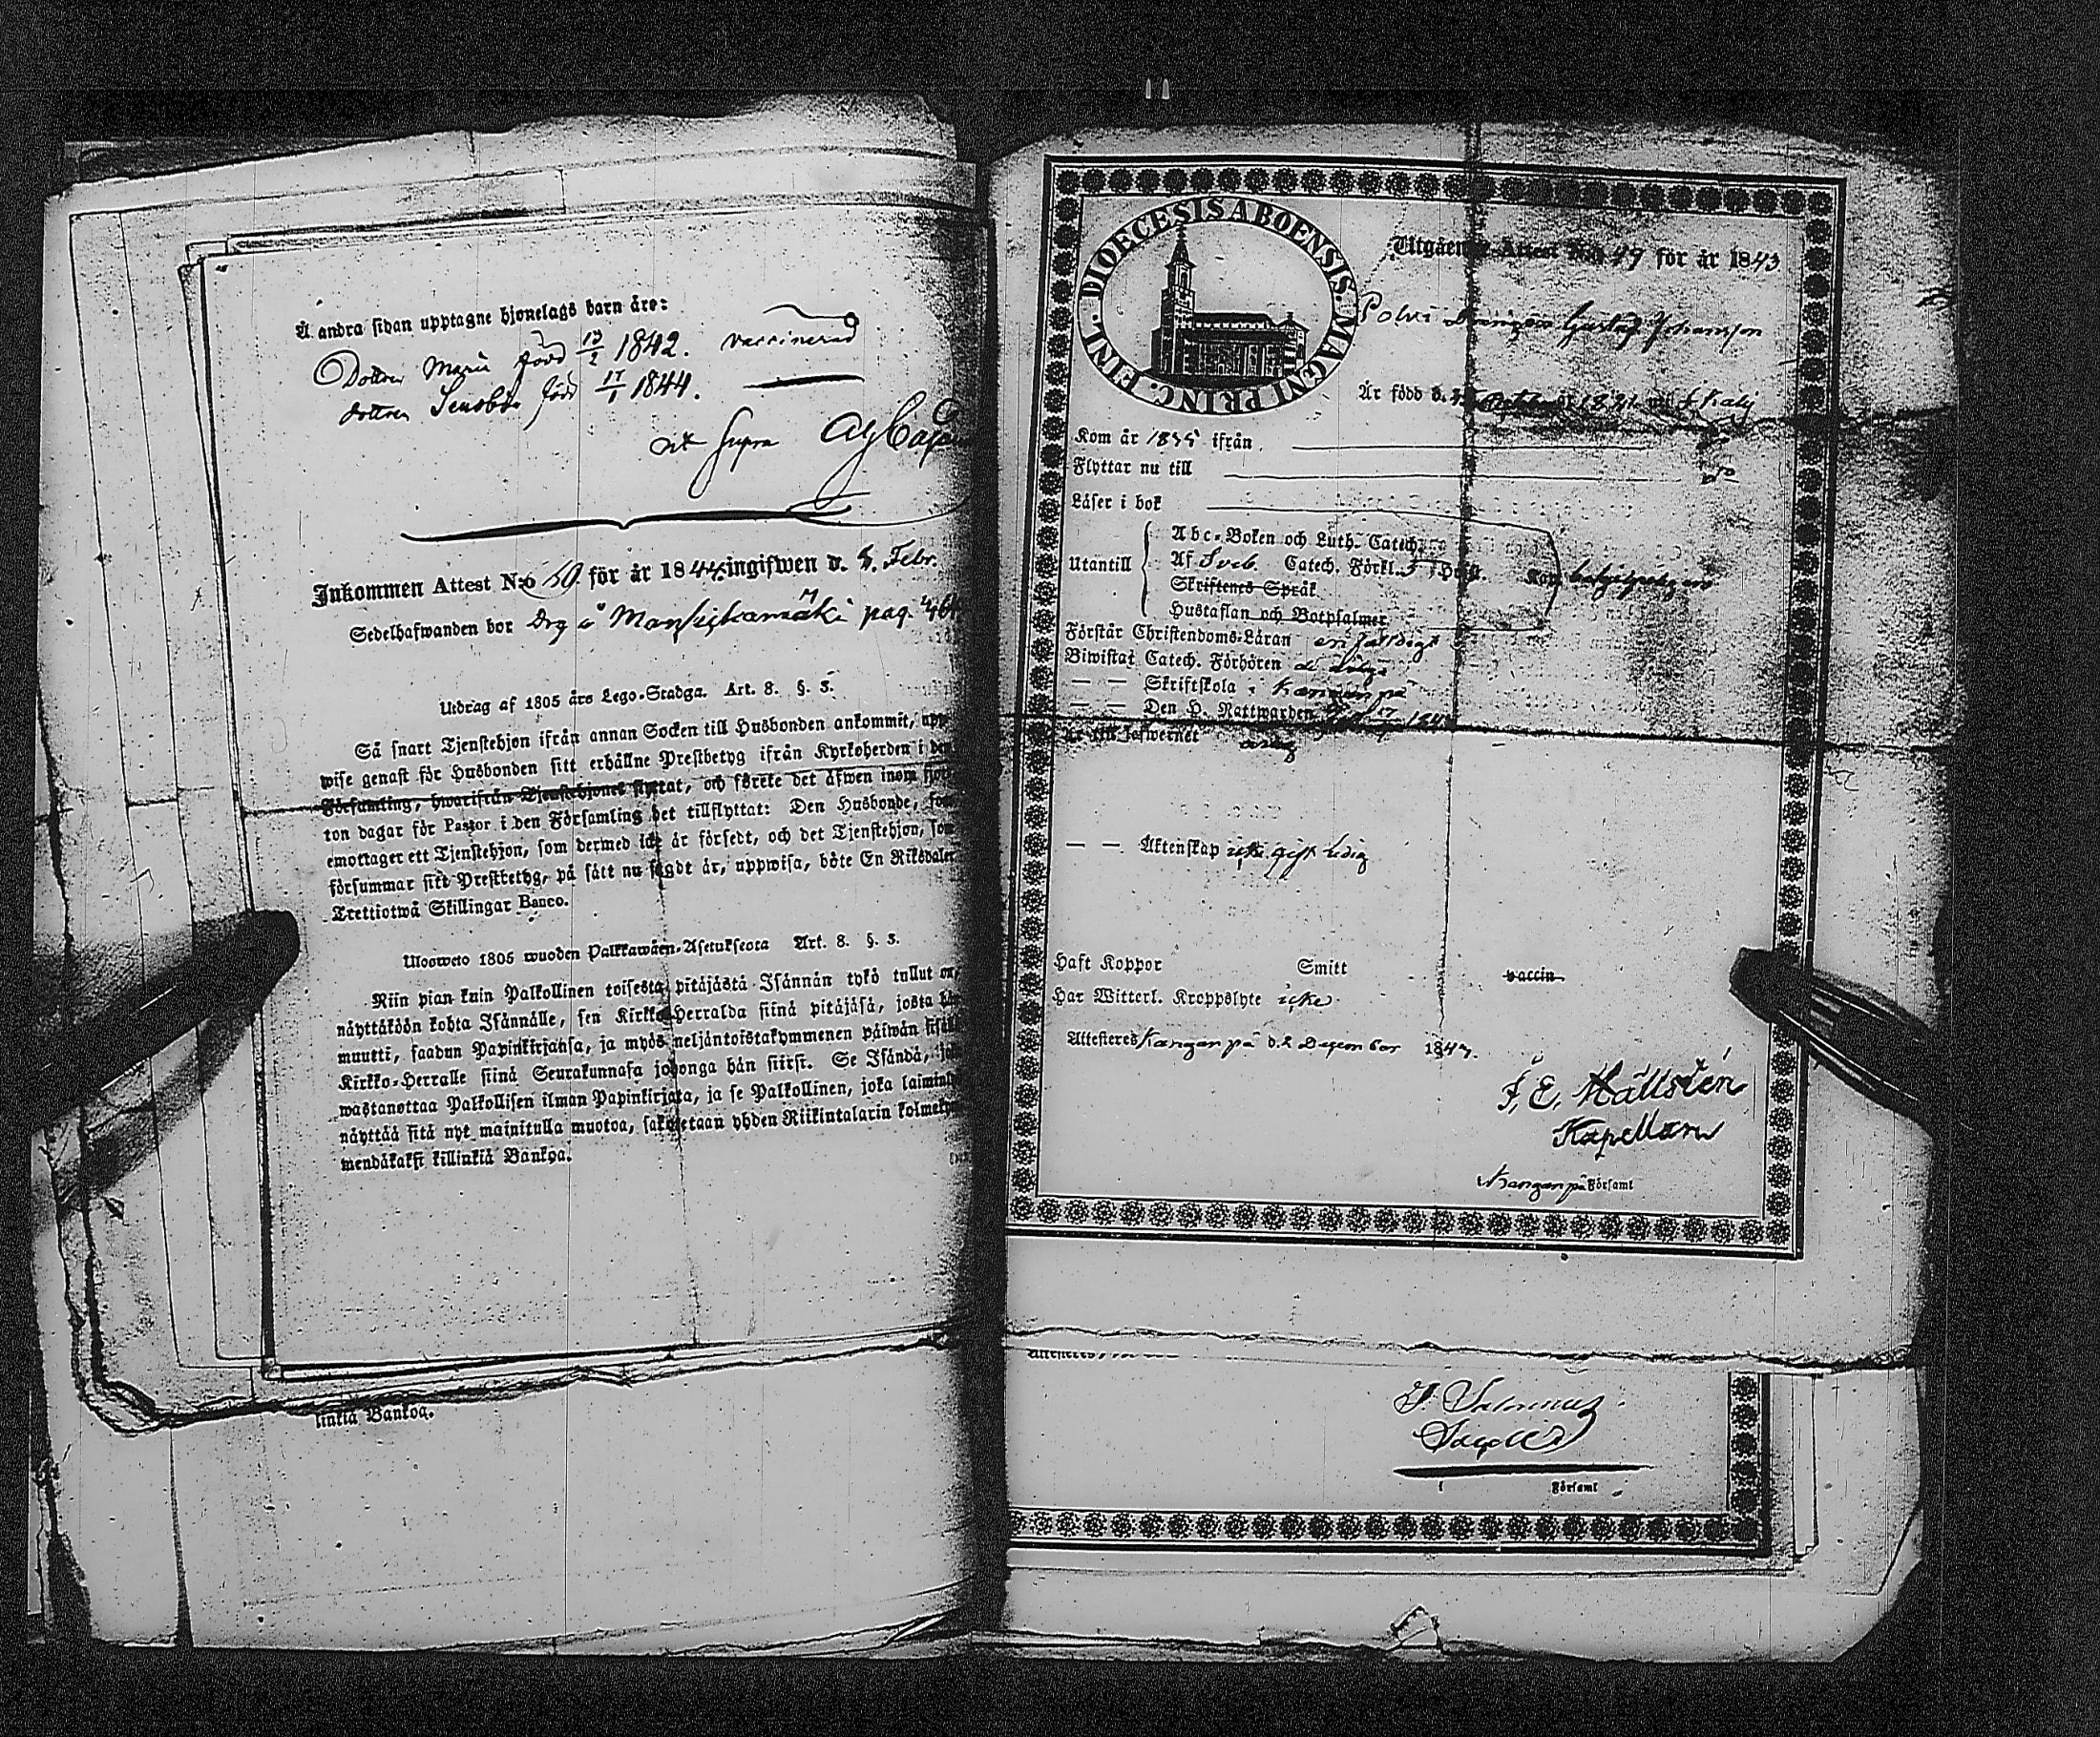 Å andra sidan upptagne hjonelags barn äro:
Dottren Maria född 13/2 1842. vaccinerad
dottren född 17/1 1844.
ut supra
Inkommen Attest N:o 50 för år 1844 ingifwen d. Febr.
Sedelhafwanden bor Drg i pag.
Utdrag af 1805 års Lego-Stadga. Art. 8. §. 3.
Så snart Tjenstehjon ifrån annan Socken till Husbonden ankommit, upp-
wise genast för Husbonden sitt erhållne Prestbetyg ifrån Kyrkoherden i den
Församling, hwarifrån Tjenstehjonet flyttat, och förete det äfwen inom fjor-
ton dagar för Pastor i den Församling det tillflyttat: Den Husbonde, som
emottager ett Tjenstehjon, som dermed icke är försedt, och det Tjenstehjon, som
försummar sitt Prestbetyg, på sätt nu sagdt är, uppwisa, böte En Riksdaler
Trettiotwå Skillingar Banco.
Uloswelo 1805 wuoden Palkkawäen-Asetuksesta Art. 8. §. 3.
Niin pian kuin Palkollinen toisesta pitäjästä Isännän tykö tullut on,
näyttäköön kohta Isännälle, sen Kirkko-Herralda siinä pitäjäsä, josta hän
muutti, saadun Papinkirjansa, ja myös neljäntoistakymmenen päiwän sisällä
Kirkko-Herralle siinä Seurakunnasa johonga hän siirst. Se Isändä, joka
wastanottaa Palkollisen ilman Papinkirjata, ja se Palkollinen, joka laiminlyö
näyttää sitä nyt mainitulla muotoa, sakotetaan yhden Riikintalarin kolmekym-
mendäkaksi killinkiä Bankoa.
linkiä Bankoa.
DIOECESIS ABOENSIS. MAGNI PRINC. FINL.
Utgående Attest N:o 49 för år 1843
Polvi Drängen Gustaf Johansson
Är född d.
Kom år 1835 ifrån
Flyttar nu till
Läser i bok
Utantill
Abc-Boken och Luth. Catech.
Af Sveb. Catech. Förkl. 3 Hufst.
Skriftenes Språk
Hustaflan och Botpsalmer
Förstår Christendoms-Läran enfaldigt
Biwistat Catech. Förhören
— — Skriftskola i Kangonpä
— — Den H. Nattwarden
Är till lefwernet
— — Äktenskap icke gift ledig
Haft Koppor Smitt vaccin
Har Witterl. Kroppslyte icke
Attesteres Kangonpä d. 2 December 1843.
F. E. Hällstén
Kapellan
i Kangonpä Församl
Attesteres
Församl